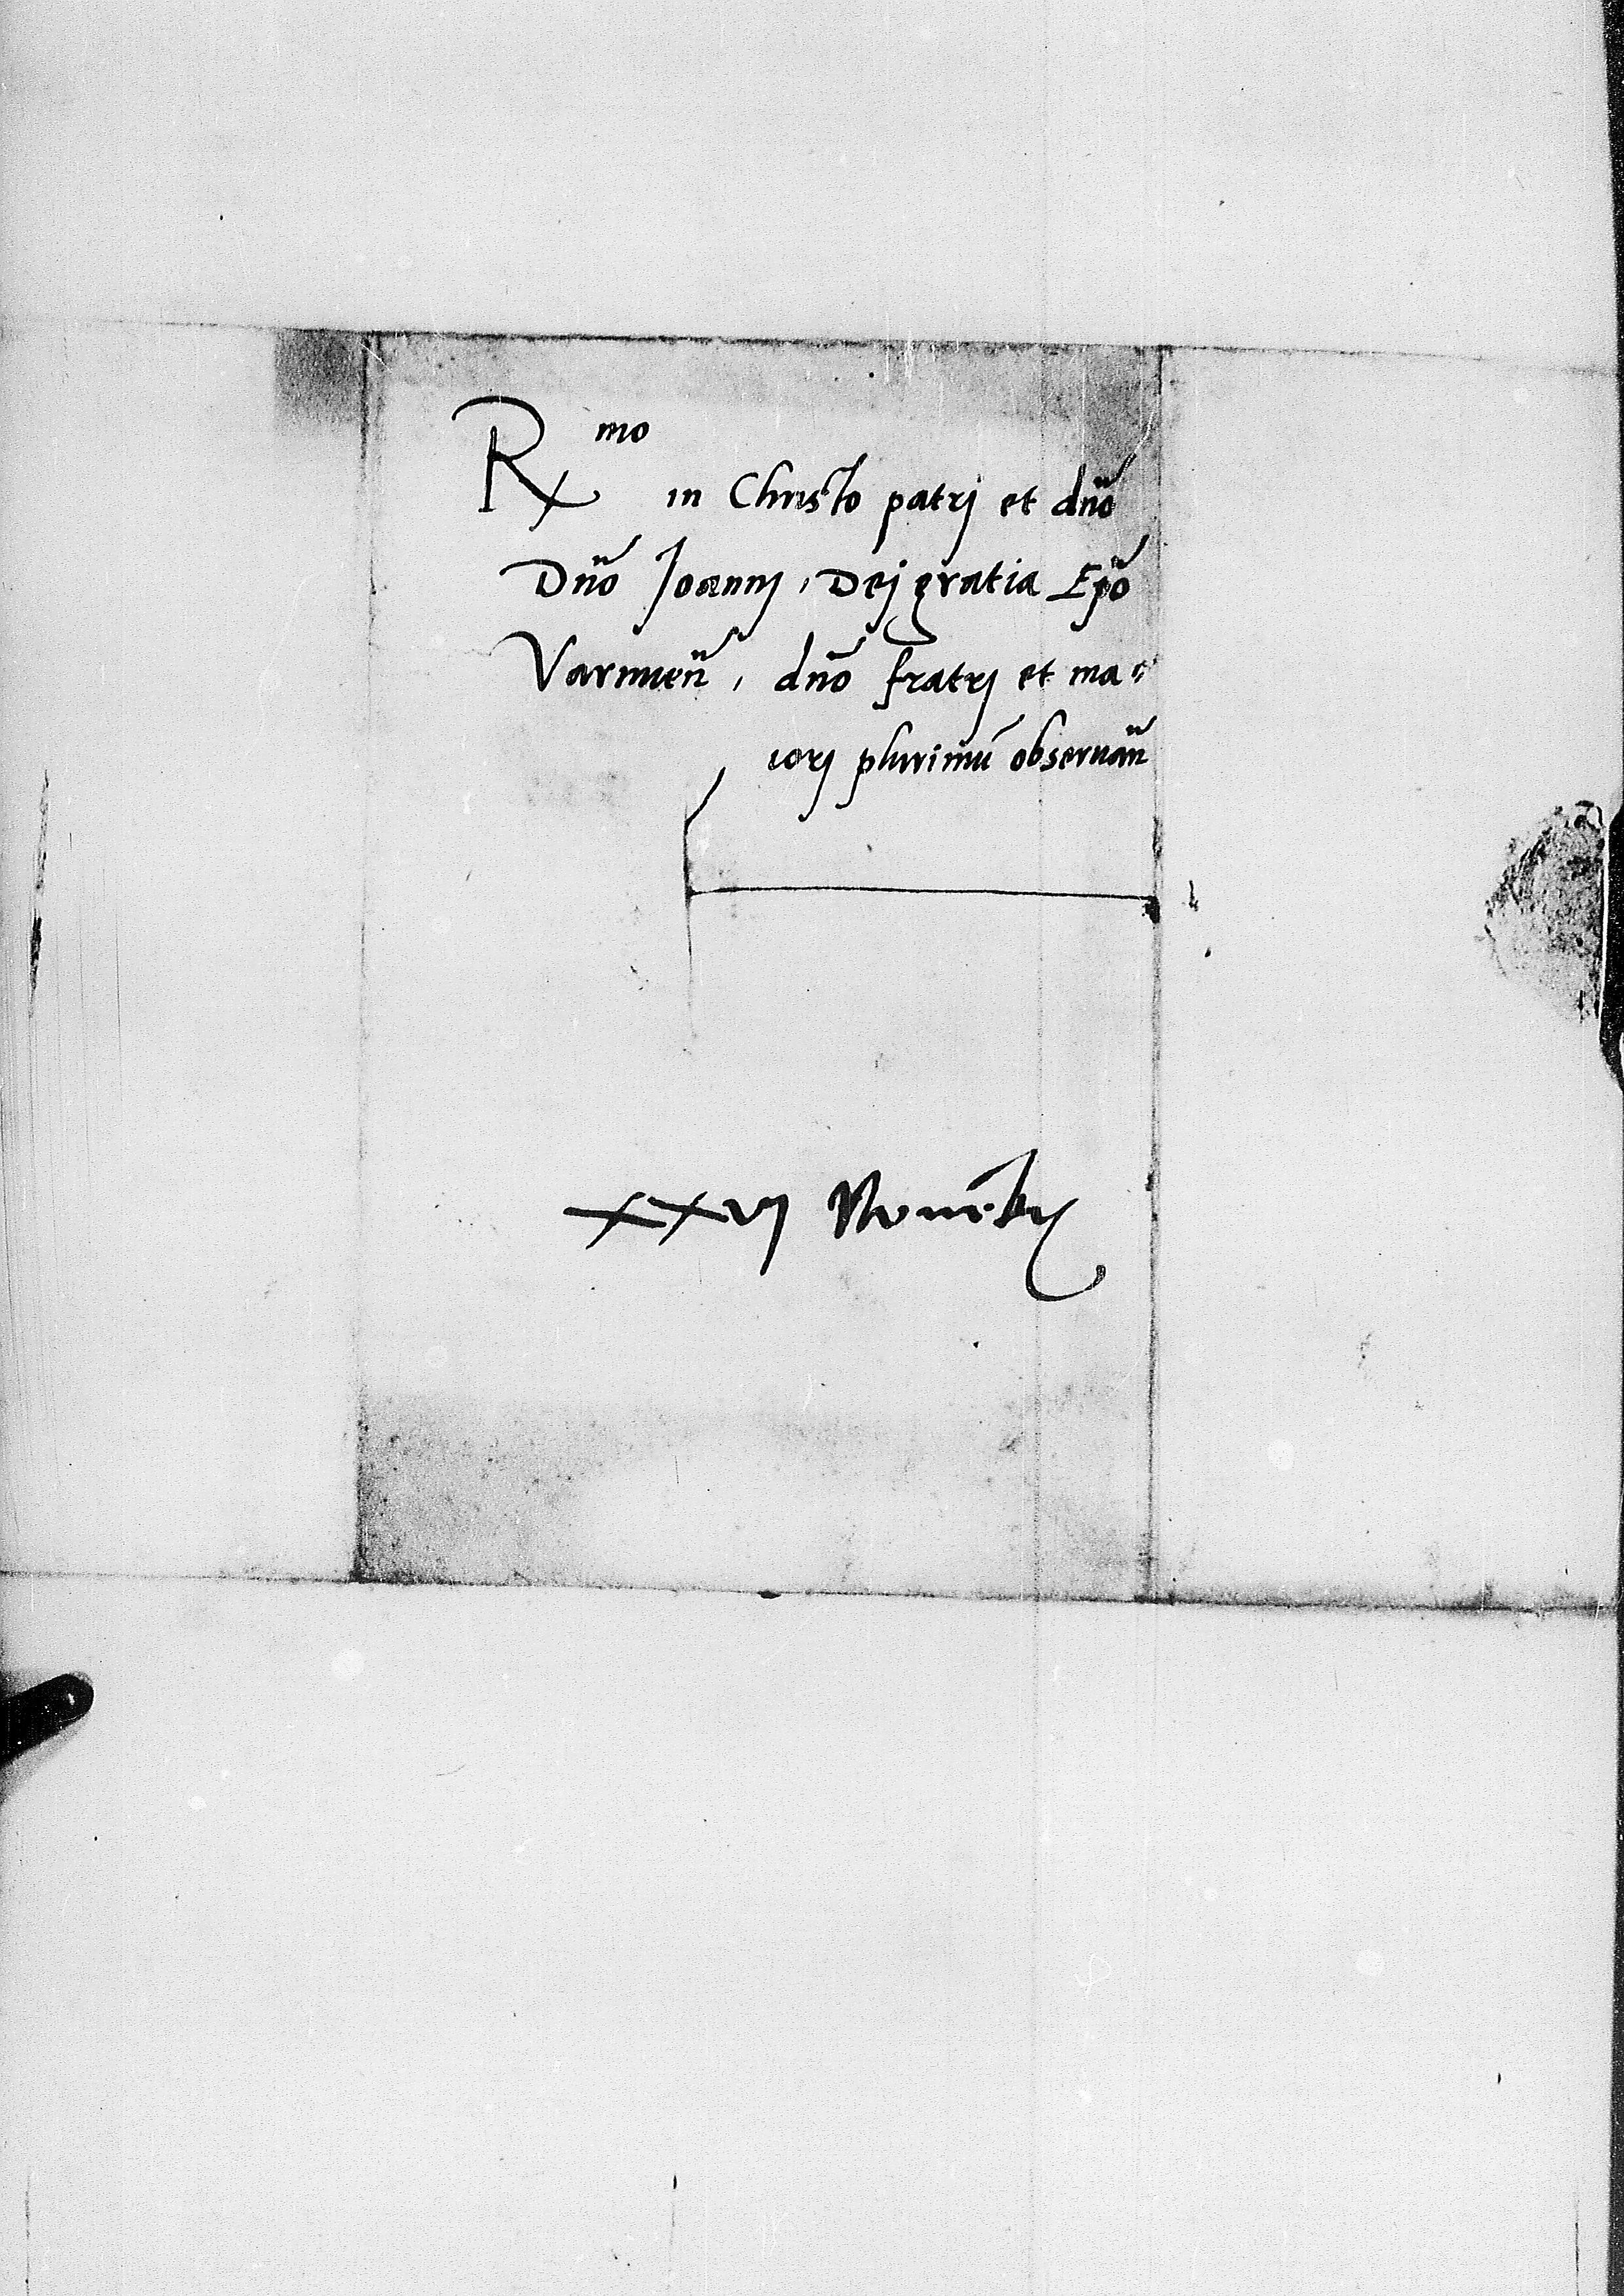 Rmo
in Christo patrj et dño
Dño Joannj, Dej gratia Epõ
Varmieñ, dño fratrj et ma=
iorj plurimũ obseruañ
xxvj Nouẽbr